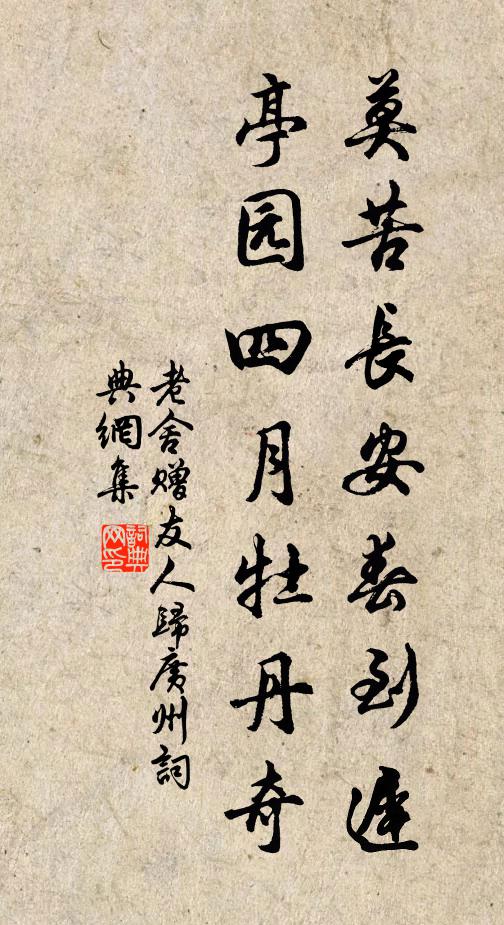 莫苦長安春到遲
亭园四月牡丹奇
老舍赠友人歸廣州詞
典網集
詞典
网印